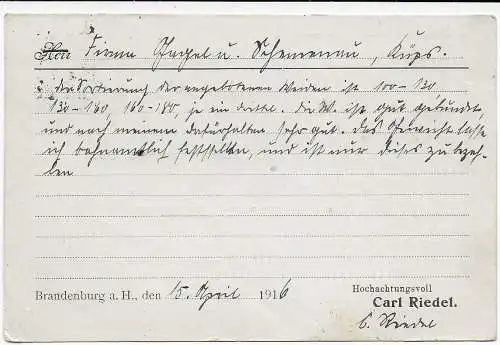 Herrn Firma Gagel u. Schemenau, Küps.
Die Sortierung der angebotenen Weiden ist 100-130,
130-160, 160-180, je ein drittel. Die W. ist gut gebündelt,
und nach meinem dafürhalten sehr gut. das Gewicht lasse
ich bahnamtlich feststellen, und ist nur dieses zu bezah-
len
Brandenburg a. H., den 15. April 1916
Hochachtungsvoll
Carl Riedel.
C. Riedel